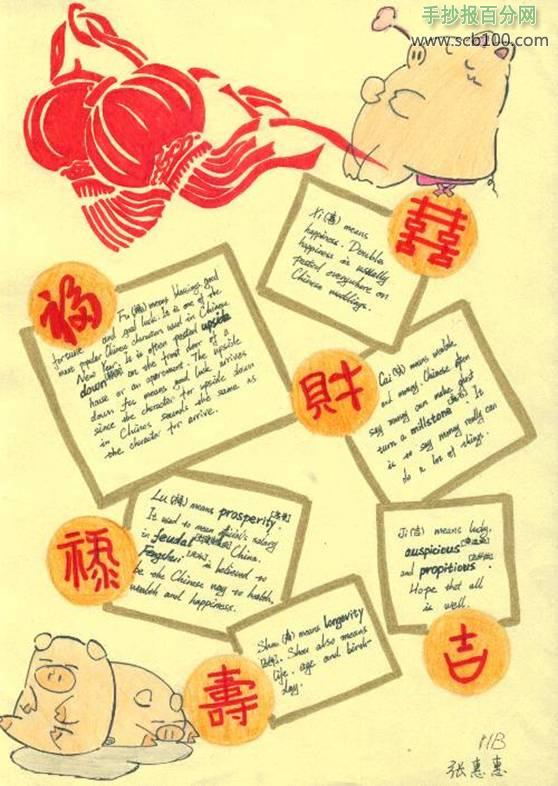 手抄报百分网
www.scb100.com
囍
Xi (喜) means
happiness. Double
happiness is usually
posted everywhere on
Chinese weddings.
福
Fu (福) means blessing, good
fortune and good luck. It is one of the
most popular Chinese characters used in Chinese
New Year. It is often posted upside
down on the front door of a
house or an apartment. The upside
down fu means good luck arrives
since the character for upside down
in Chinese sounds the same as
the character for arrive.
財
Cai (财) means wealth
and money. Chinese often
say money can make ghost
turn a millstone. It
is to say money really can
do a lot of things.
禄
Lu (禄) means prosperity.
It used to mean official's salary
in feudal China.
Fengshui is believed to
be the Chinese way to health,
wealth and happiness.
Ji (吉) means lucky,
auspicious
and propitious.
Hope that all
is well.
吉
壽
Shou (寿) means longevity
. Shou also means
life, age and birth-
day.
HB
张惠惠